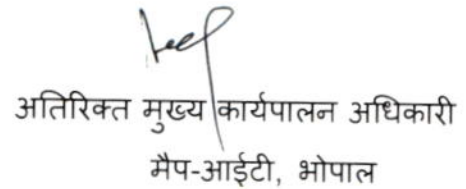 अतिरिक्त मुख्य कार्यपालन अधिकारी
मैप-आईटी, भोपाल